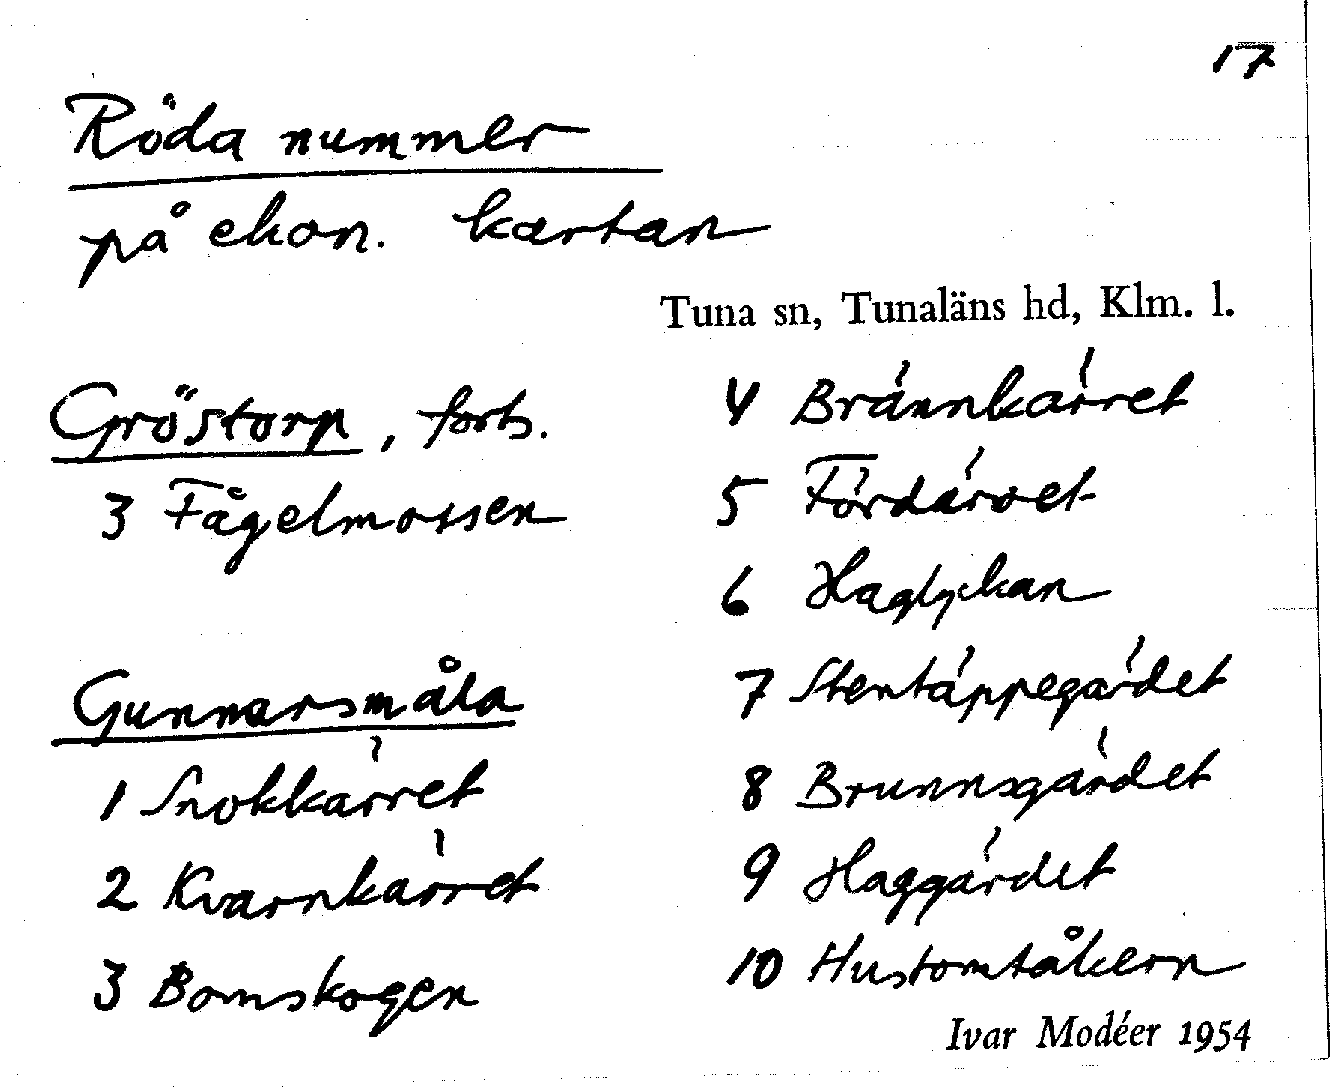 17
Röda nummer
på ekon. kartan
Tuna sn, Tunaläns hd, Klm. l.
Gröstorp, forts.
3 Fågelmossen
Gunnarsmåla
1 Snokkärret
2 Kvarnkärret
3 Bomskogen
4 Brännkärret
5 Fördärvet
6 Haglyckan
7 Stentäppegärdet
8 Brunnsgärdet
9 Haggärdet
10 Hustomtåkern
Ivar Modéer 1954